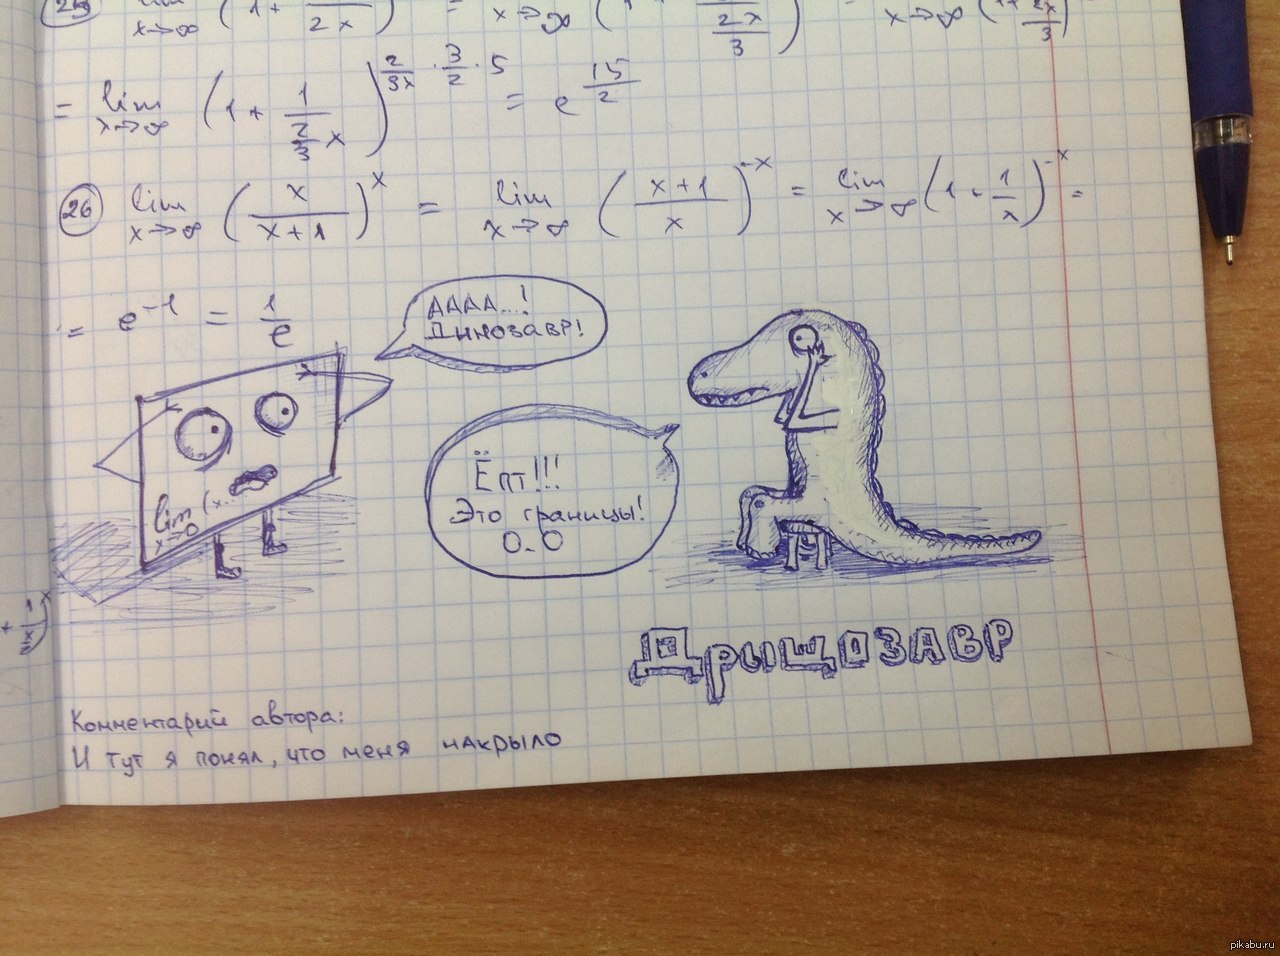 25 lim x→∞ (1+ 2x ) = x→∞ (1 2x/3 ) = x→∞ (1+ 2x/3 )
= lim x→∞ (1 + 1/(2/3 x))^(2/3x · 3/2 · 5) = e^(15/2)
26 lim x→∞ (x/(x+1))^x = lim x→∞ ((x+1)/x)^-x = lim x→∞ (1 + 1/x)^-x =
= e^-1 = 1/e
АААА...!
Динозавр!
Ёпт!!!
Это границы!
О_О
lim (x...
x→0
Дрыщозавр
Комментарий автора:
И тут я понял, что меня накрыло
pikabu.ru